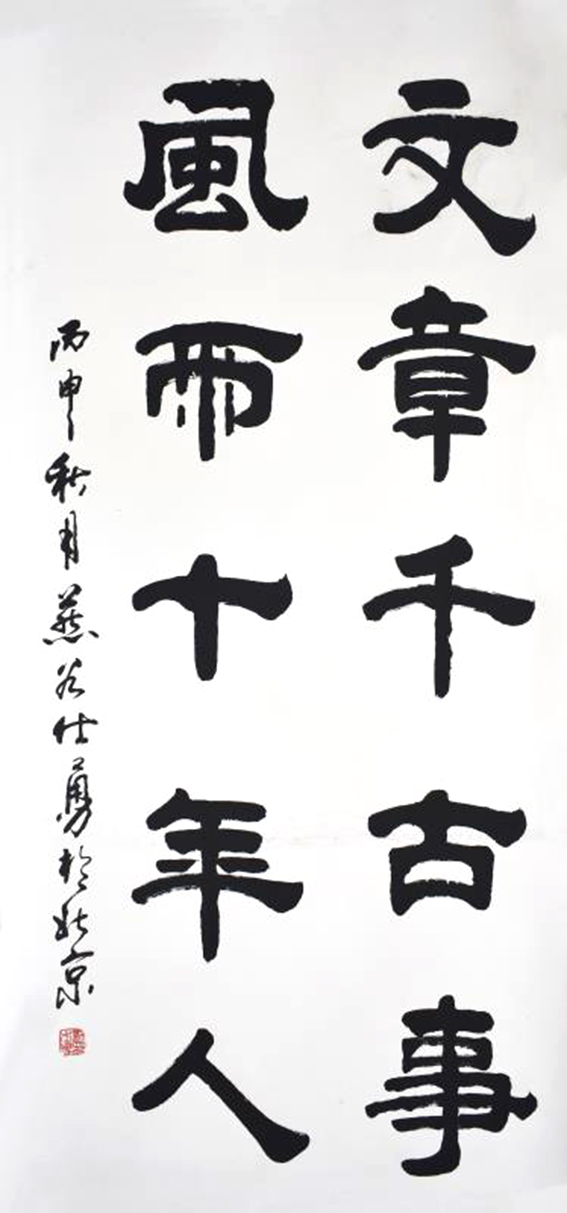 文章千古事
風雨十年人
丙申秋月燕谷仕勇於北京